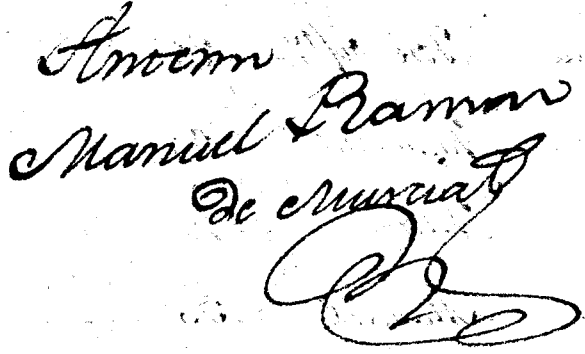 Antonio
Manuel Ramon
de Murcia